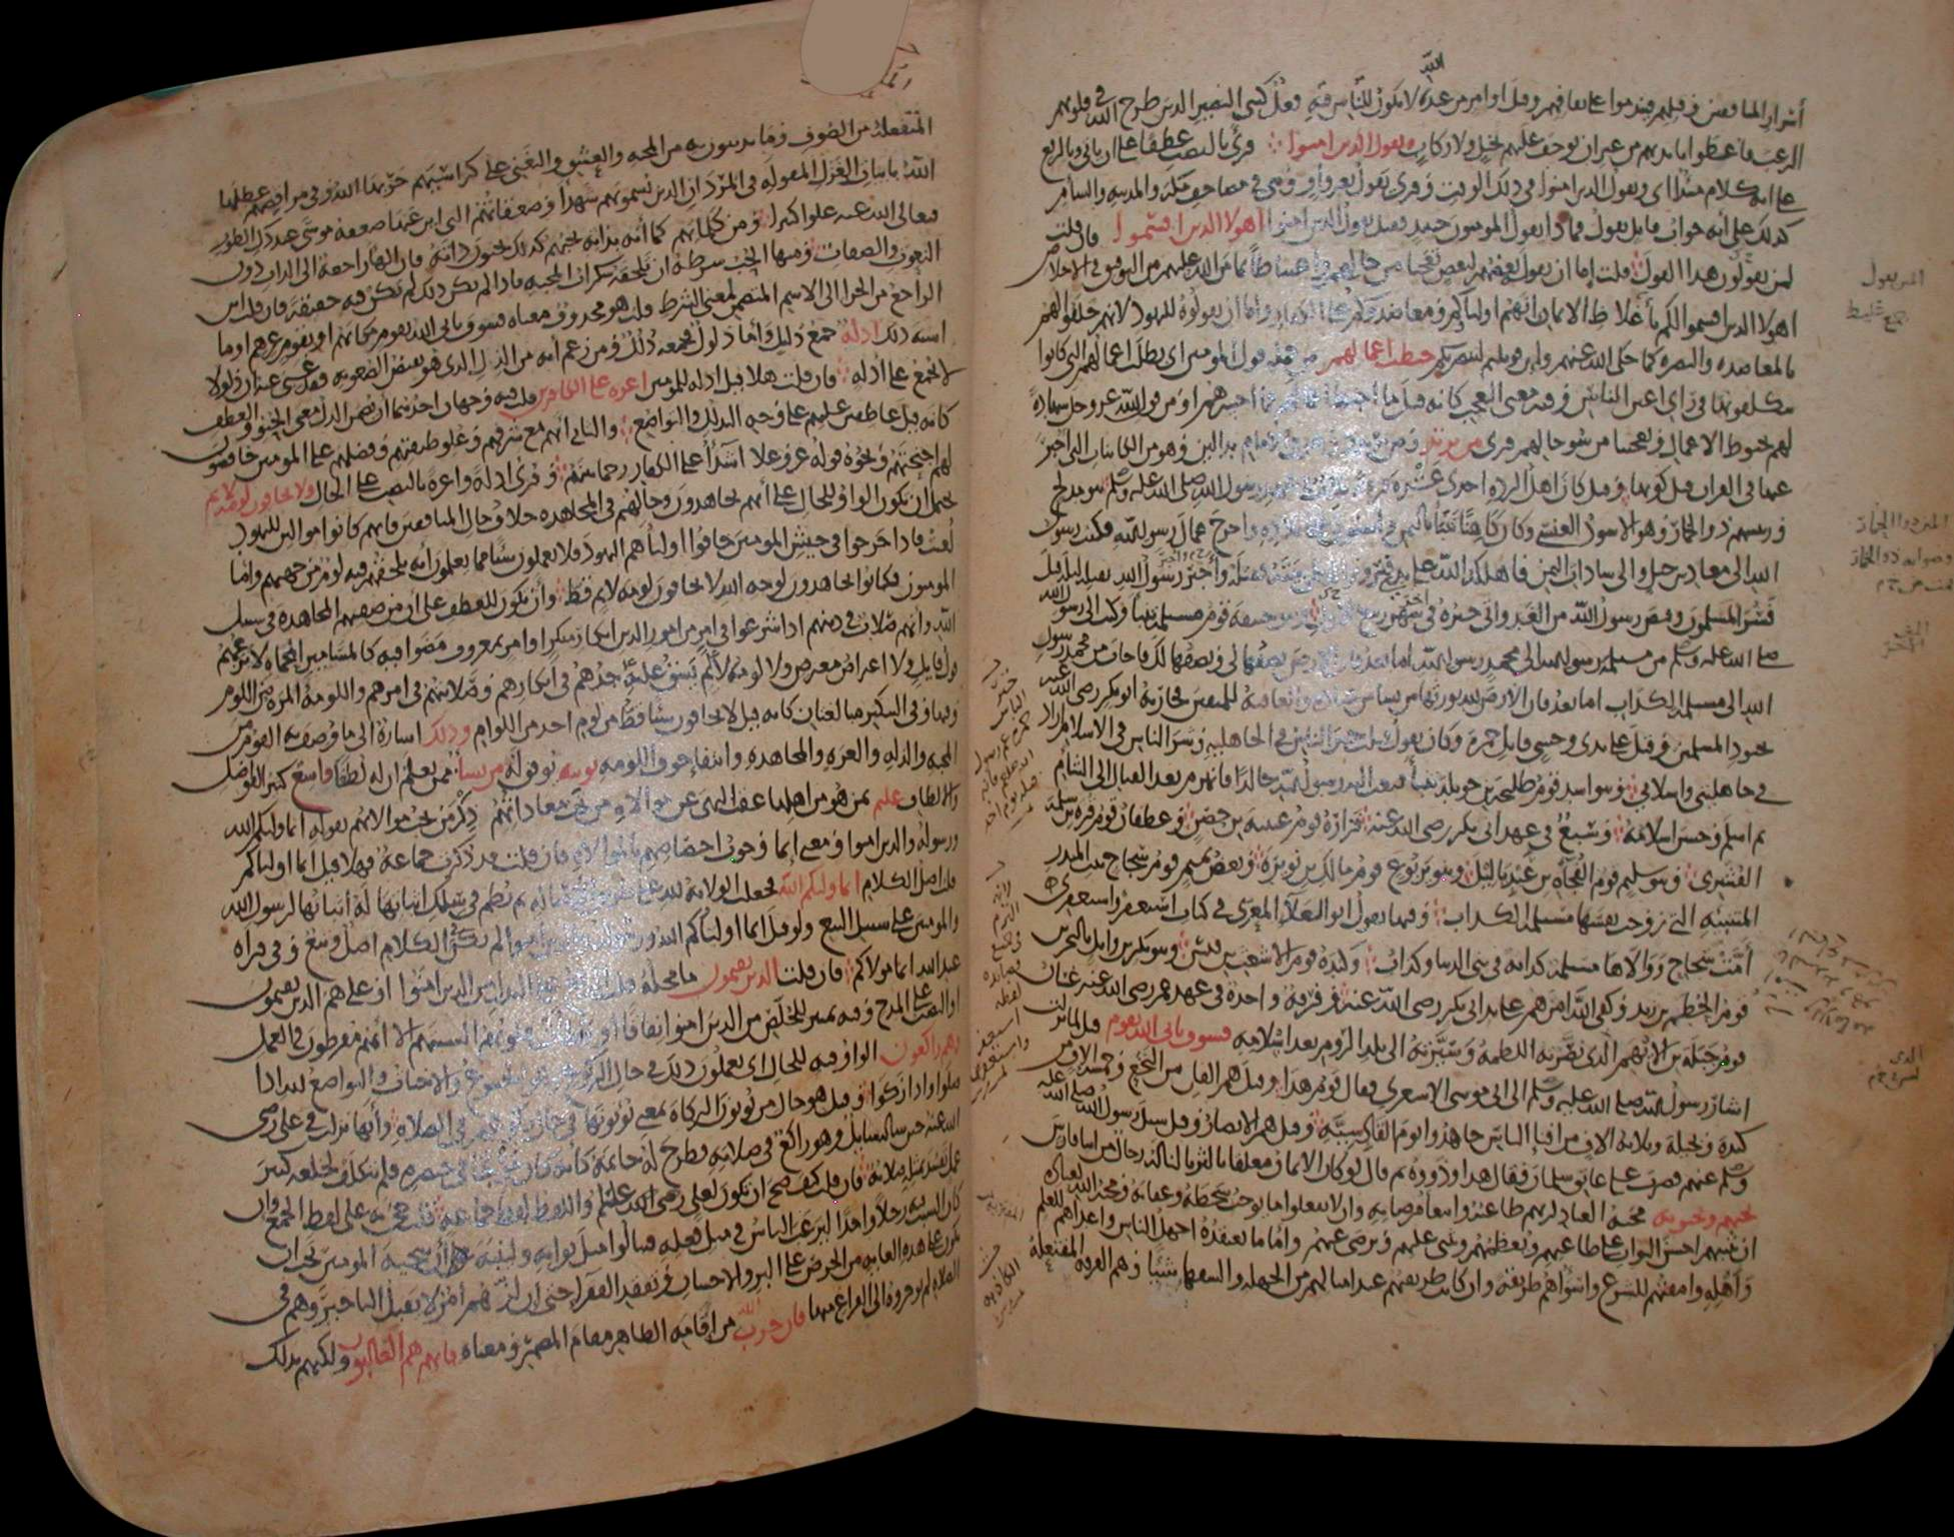 أسرار المنافقين وقتلهم فيندموا على نفاقهم وقيل أو أمر من عند الله لا يكون للناس فيه فعل كبني النضير الذين طرح الله في قلوبهم
الرعب فأعطوا بأيديهم من غير أن يوجف عليهم بخيل ولا ركاب ويقول الذين امنوا قرئ بالنصب عطفا على أن يأتي وبالرفع
على أنه كلام مبتدأ أي ويقول الذين امنوا في ذلك الوقت وقرئ يقول بغير واو وهي في مصاحف مكة والمدينة والشأم
كذلك على أنه جواب قائل يقول فماذا يقول المؤمنون حينئذ فقيل يقول الذين امنوا أهؤلاء الذين اقسموا فان قلت
لمن يقولون هذا القول قلت إما أن يقوله بعضهم لبعض تعجبا من حالهم واغتباطا بما من الله عليهم من التوفيق في الاخلاص
أهؤلاء الذين اقسموا لكم بأغلاظ الايمان أنهم أولياؤكم ومعاضدوكم على الكفار وإما أن يقولوه لليهود لانهم حلفوا لهم
بالمعاضدة والنصرة كما حكى الله عنهم وإن قوتلتم لننصرنكم حبطت أعمالهم من جملة قول المؤمنين أي بطلت أعمالهم التي كانوا
يتكلفونها في رأي أعين الناس وفيه معنى التعجب كأنه قيل ما أحبط أعمالهم فما أخسرهم أو من قول الله عز وجل شهادة
لهم بحبوط الاعمال وتعجيبا من سوء حالهم قرئ من يرتد ومن يرتدد وهو في الإمام بدالين وهو من الكائنات التي أخبر
عنها في القران قبل كونها وقيل كان أهل الردة إحدى عشرة فرقة ثلاث في عهد رسول الله صلى الله عليه وسلم بنو مدلج
ورئيسهم ذو الخمار وهو الاسود العنسي وكان كاهنا تنبأ باليمن واستولى على بلاده وأخرج عمال رسول الله فكتب رسول
الله إلى معاذ بن جبل وإلى سادات اليمن فأهلكه الله على يدي فيروز الديلمي بيته فقتله وأخبر رسول الله بقتله ليلة قتل
فسر المسلمون وقبض رسول الله من الغد وأتى خبره في آخر شهر ربيع الأول وبنو حنيفة قوم مسيلمة تنبأ وكتب إلى رسول الله
صلى الله عليه وسلم من مسيلمة رسول الله إلى محمد رسول الله أما بعد فإن الأرض نصفها لي ونصفها لك فأجاب من محمد رسول
الله إلى مسيلمة الكذاب أما بعد فان الارض لله يورثها من يشاء من عباده والعاقبة للمتقين فحاربه أبو بكر رضي الله عنه
بجنود المسلمين وقتل على يدي وحشي قاتل حمزة وكان يقول قتلت خير الناس في الجاهلية وشر الناس في الاسلام أراد
في جاهليتي واسلامي وبنو أسد قوم طليحة بن خويلد تنبأ فبعث إليه رسول الله خالدا فانهزم بعد القتال إلى الشأم
ثم أسلم وحسن إسلامه وسبع في عهد أبي بكر رضي الله عنه فزارة قوم عيينة بن حصن وغطفان قوم قرة بن سلمة
القشيري وبنو سليم قوم الفجاءة بن عبد ياليل وبنو يربوع قوم مالك بن نويرة وبعض تميم قوم سجاح بنت المنذر
المتنبئة التي زوجت نفسها مسيلمة الكذاب وفيها يقول أبو العلاء المعري في كتاب استغفر واستغفري
أمت سجاح ووالاها مسيلمة كذابة في بني الدنيا وكذاب وكندة قوم الاشعث بن قيس وبنو بكر بن وائل بالبحرين
قوم الحطم بن زيد وكفى الله أمرهم على يد أبي بكر رضي الله عنه وفرقة واحدة في عهد عمر رضي الله عنه غسان
قوم جبلة بن الأيهم الذي نصرته اللطمة وسيرته إلى بلد الروم بعد إسلامه فسوف يأتي الله بقوم قيل لما نزلت
أشار رسول الله صلى الله عليه وسلم إلى أبي موسى الاشعري فقال قوم هذا وقيل هم ألفان من النخع وخمسة الاف من
كندة وبجيلة وثلاثة الاف من أفناء الناس جاهدوا يوم القادسية وقيل هم الانصار وقيل سئل رسول الله صلى الله عليه
وسلم عنهم فضرب على عاتق سلمان فقال هذا وذووه ثم قال لو كان الايمان معلقا بالثريا لناله رجال من أبناء فارس
يحبهم ويحبونه محبة العباد لربهم طاعته وابتغاء مرضاته وان لا يفعلوا ما يوجب سخطه وعقابه ومحبة الله لعباده
أن يثيبهم أحسن الثواب على طاعتهم ويعظمهم ويثني عليهم ويرضى عنهم وأما ما يعتقده أجهل الناس وأعداهم للعلم
وأهله وأمقتهم للشرع وأسوأهم طريقة وان كانت طريقتهم عند أمثالهم من الجهلة والسفهاء شيئا وهم الفرقة المفتعلة
المتفعلة من الصوف وما يدينون به من المحبة والعشق والتغني على كراسيهم خربها الله وفي مراقصهم عطلها
الله بأبيات الغزل المقولة في المردان الذين يسمونهم شهدا وصعقاتهم التي أين عنها صعقة موسى عند دك الطور
فتعالى الله عنه علوا كبيرا ومن كلماتهم كما أنه بذاته يحبهم كذلك يحبون ذاته فان الهاء راجعة إلى الذات دون
النعوت والصفات ومنها الحب شرطه ان تلحقه سكرات المحبة فاذا لم يكن ذلك لم تكن فيه حقيقة فان قلت اين
الراجع من الجزاء إلى الاسم المتضمن لمعنى الشرط قلت هو محذوف معناه فسوف يأتي الله بقوم مكانهم أو بقوم غيرهم أو ما
أشبه ذلك أذلة جمع ذليل وأما ذلول فجمعه ذلل ومن زعم أنه من الذل الذي هو نقيض الصعوبة فقد غبي عنه أن ذلولا
لا يجمع على أذلة فان قلت هلا قيل أذلة للمؤمنين أعزة على الكافرين قلت فيه وجهان أحدهما أن يضمن الذل معنى الحنو والعطف
كأنه قيل عاطفين عليهم على وجه التذلل والتواضع والثاني أنهم مع شرفهم وعلو طبقتهم وفضلهم على المؤمنين خافضون
لهم أجنحتهم ونحوه قوله عز وعلا أشداء على الكفار رحماء بينهم وقرئ أذلة وأعزة بالنصب على الحال ولا يخافون لومة لائم
يحتمل أن تكون الواو للحال على أنهم يجاهدون وحالهم في المجاهدة خلاف حال المنافقين فإنهم كانوا موالين لليهود
لعنت فاذا خرجوا في جيش المؤمنين خافوا أولياءهم اليهود فلا يعملون شيئا مما يعلمون أنه يلحقهم فيه لوم من جهتهم وأما
المؤمنون فكانوا يجاهدون لوجه الله لا يخافون لومة لائم قط وأن تكون للعطف على أن من صفتهم المجاهدة في سبيل
الله وأنهم صلاب في دينهم إذا شرعوا في أمر من أمور الدين إنكار منكر أو أمر بمعروف مضوا فيه كالمسامير المحماة لا يرعبهم
قول قائل ولا اعتراض معترض ولا لومة لائم يشق عليه جدهم في إنكارهم وصلابتهم في أمرهم واللومة المرة من اللوم
وفيها وفي التنكير مبالغتان كأنه قيل لا يخافون شيئا قط من لوم أحد من اللوام وذلك إشارة إلى ما وصف به القوم من
المحبة والذلة والعزة والمجاهدة وانتفاء خوف اللومة يؤتيه يوفق له من يشاء ممن يعلم أن له لطفا واسع كثير الفواضل
والالطاف عليم بمن هو من أهلها عقب النهي عن موالاة من تجب معاداتهم ذكر من تجب موالاتهم بقوله إنما وليكم الله
ورسوله والذين امنوا ومعنى إنما وجوب اختصاصهم بالموالاة فان قلت قد ذكرت جماعة فهلا قيل إنما أولياؤكم
قلت أصل الكلام إنما وليكم الله فجعلت الولاية لله على طريق الأصالة ثم نظم في سلك إثباتها له إثباتها لرسول الله
والمؤمنين على سبيل التبع ولو قيل إنما أولياؤكم الله ورسوله والذين امنوا لم يكن في الكلام أصل وتبع وفي قراءة
عبد الله إنما مولاكم فان قلت الذين يقيمون ما محله قلت الرفع على البدل من الذين امنوا أو على هم الذين يقيمون
أو النصب على المدح وفيه تمييز للخلص من الذين امنوا نفاقا أو واطأت قلوبهم ألسنتهم إلا أنهم مفرطون في العمل
وهم راكعون الواو فيه للحال أي يعملون ذلك في حال الركوع وهو الخشوع والاخبات والتواضع لله إذا
صلوا وإذا زكوا وقيل هو حال من يؤتون الزكاة بمعنى يؤتونها في حال ركوعهم في الصلاة وأنها نزلت في علي رضي
الله عنه حين سأله سائل وهو راكع في صلاته فطرح له خاتمه كأنه كان مرجا في خنصره فلم يتكلف لخلعه كبير
عمل تفسد بمثله صلاته فان قلت كيف صح أن يكون لعلي رضي الله عنه واللفظ لفظ جماعة قلت جيء به على لفظ الجمع وان
كان السبب فيه رجلا واحدا ليرغب الناس في مثل فعله فينالوا مثل ثوابه ولينبه على أن سجية المؤمنين يجب أن
تكون على هذه الغاية من الحرص على البر والاحسان وتفقد الفقراء حتى إن لزهم أمر لا يقبل التأخير وهم في
الصلاة لم يؤخروه إلى الفراغ منها فان حزب الله من إقامة الظاهر مقام المضمر ومعناه فإنهم هم الغالبون ولكنهم بذلك